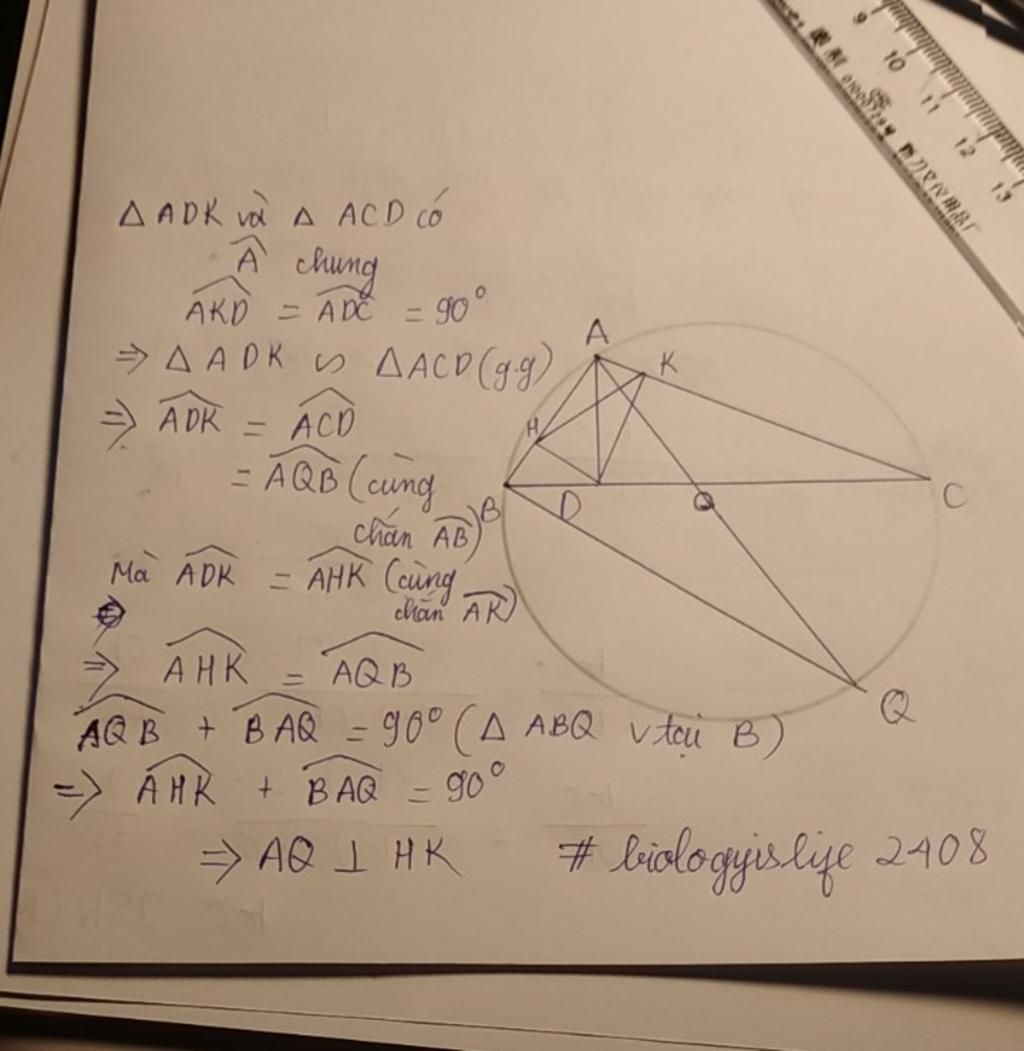 △ ADK và △ ACD có
Â chung
AKD = ADC = 90°
⇒ △ ADK ∽ △ACD (g.g)
⇒ ADK = ACD
= AQB (cùng
chắn AB)
Mà ADK = AHK (cùng
chắn AK)
⇒ AHK = AQB
AQB + BAQ = 90° (△ ABQ v tại B)
⇒ AHK + BAQ = 90°
⇒ AQ ⊥ HK
# biologyislife 2408
A
K
H
B
D
O
C
Q
9
10
11
12
13